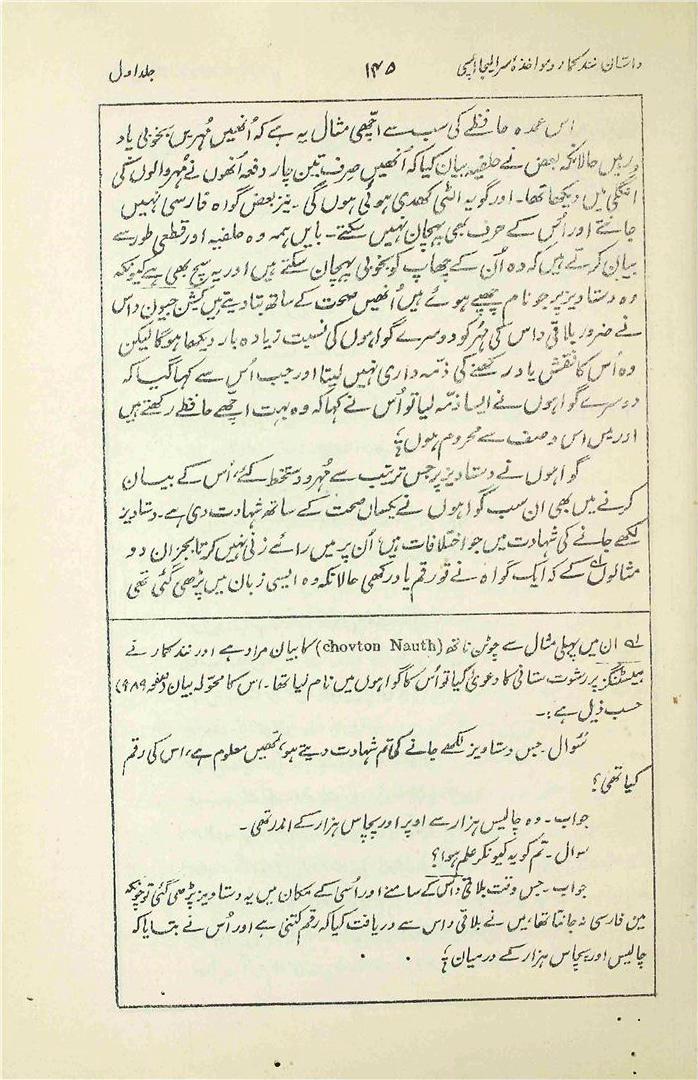 داستان نند کمار و مواخذۂ سر الیجا امپی ۱۴۵ جلد اول
اس عمدہ حافظے کی سب سے اچھی مثال یہ ہے کہ اُنھیں مُہریں بخوبی یاد
رہیں حالانکہ بعض نے حلفیہ بیان کیا کہ اُنھیں صرف تین چار دفعہ اُنھوں نے مُہر والوں کی
انگلی میں دیکھا تھا۔ اور گو یہ الٹی کھدی ہوئی ہوں گی۔ نیز بعض گواہ فارسی نہیں
جانتے اور اُس کے حرف بھی پہچان نہیں سکتے۔ بایں ہمہ وہ حلفیہ اور قطعی طور سے
بیان کرتے ہیں کہ وہ اُن کے چھاپ کو بخوبی پہچان سکتے ہیں اور یہ سچ بھی ہے کیونکہ
وہ دستاویز پر جو نام چھپے ہوئے ہیں اُنھیں صحت کے ساتھ بتا دیتے ہیں کشن جیون داس
نے ضرور بلاقی داس کی مُہر کو دوسرے گواہوں کی نسبت زیادہ بار دیکھا ہوگا لیکن
وہ اُس کا نقش یاد رکھنے کی ذمہ داری نہیں لیتا اور جب اُس سے کہا گیا کہ
دوسرے گواہوں نے ایسا ذمہ لیا تو اُس نے کہا کہ وہ بہت اچھے حافظے رکھتے ہیں
اور میں اس وصف سے محروم ہوں؛؛
گواہوں نے دستاویز پر جس ترتیب سے مُہر و دستخط کئے، اُس کے بیان
کرنے میں بھی ان سب گواہوں نے یکساں صحت کے ساتھ شہادت دی ہے۔ دستاویز
لکھے جانے کی شہادت میں جو اختلافات ہیں اُن پر میں رائے زنی نہیں کرتا بجز ان دو
مثالوں لہ کے کہ ایک گواہ نے تو رقم یاد رکھی حالانکہ وہ ایسی زبان میں پڑھی گئی تھی
لہ ان میں پہلی مثال سے چوٹن ناتھ (chovton Nauth) کا بیان مراد ہے اور نند کمار نے
ہیسٹنگز پر رشوت ستانی کا دعویٰ کیا تو اُس کا گواہوں میں نام لیا تھا۔ اس کا محولہ بیان (صفحہ ۹۸۹)
حسب ذیل ہے:۔
سُوال۔ جس دستاویز لکھے جانے کی تم شہادت دیتے ہو، تمھیں معلوم ہے، اس کی رقم
کیا تھی؟
جواب۔ وہ چالیس ہزار سے اوپر اور پچاس ہزار کے اندر تھی۔
سوال۔ تم کو یہ کیونکر علم ہوا؟
جواب۔ جس وقت بلاقی داس کے سامنے اور اُسی کے مکان میں یہ دستاویز پڑھی گئی تو چونکہ
میں فارسی نہ جانتا تھا، میں نے بلاقی داس سے دریافت کیا کہ رقم کتنی ہے اور اُس نے بتایا کہ
چالیس اور پچاس ہزار کے درمیان؛؛